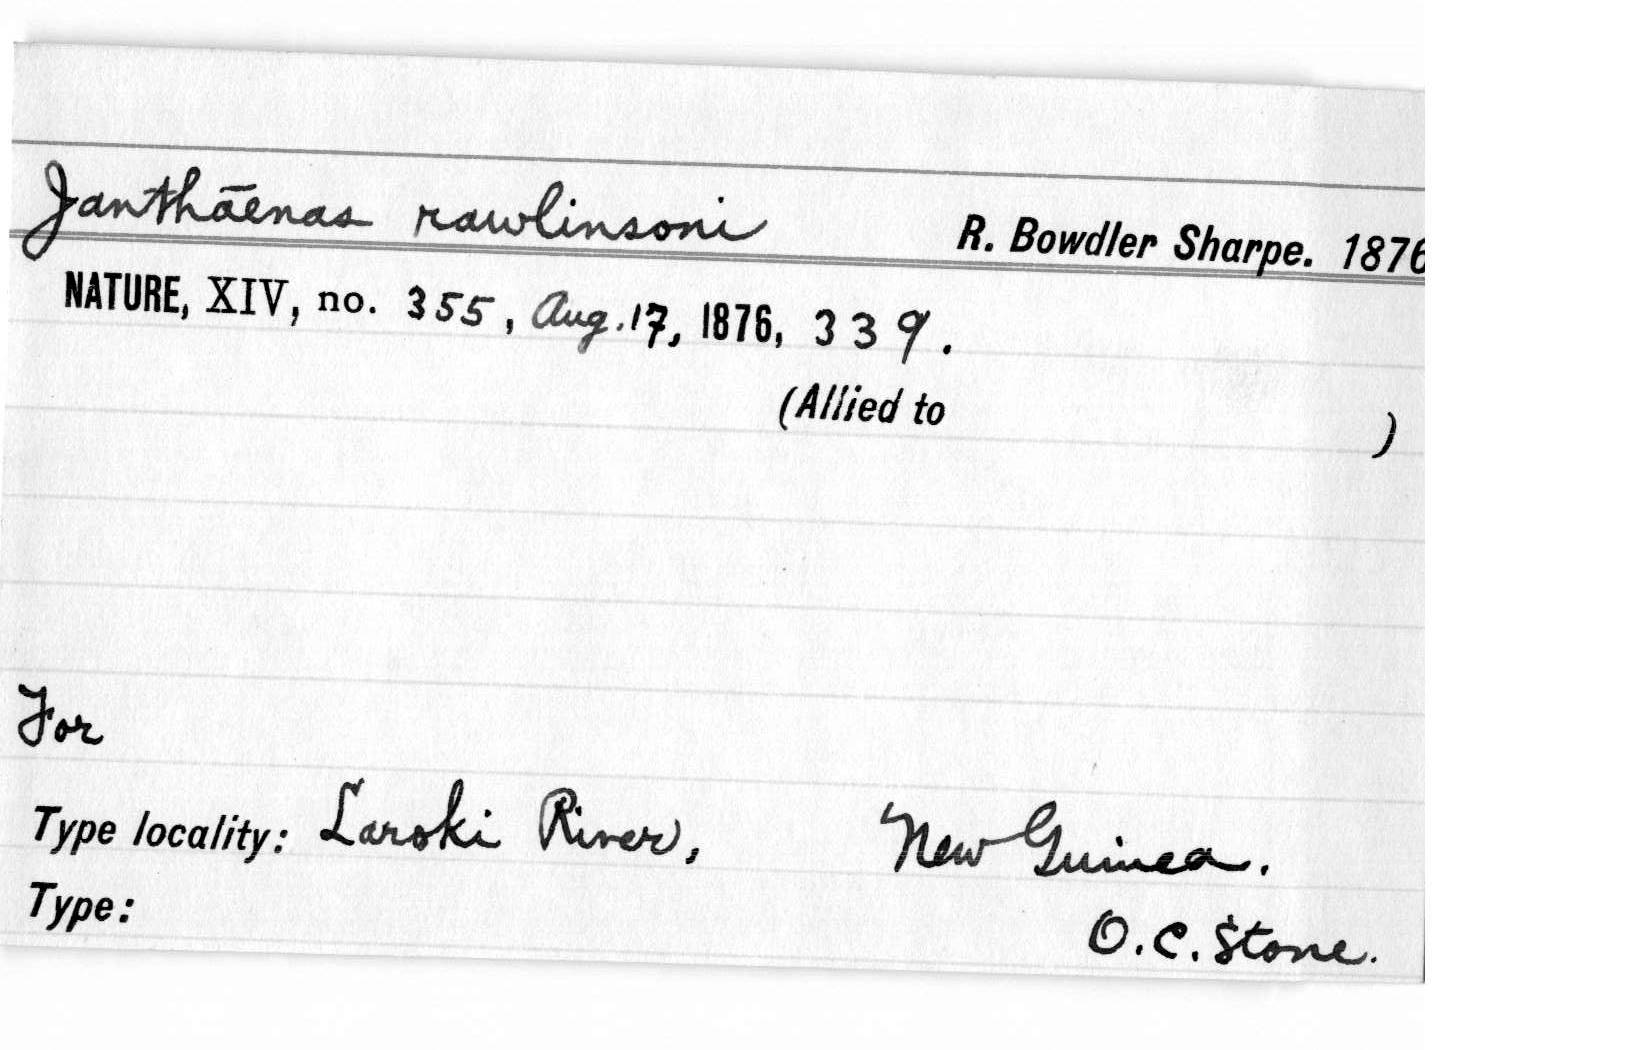 Janthāenas rawlinsoni R. Bowdler Sharpe. 1876
NATURE, XIV, no. 355, Aug. 17, 1876, 339.
(Allied to )
For
Type locality: Laroki River, New Guinea.
Type:
O.C. Stone.